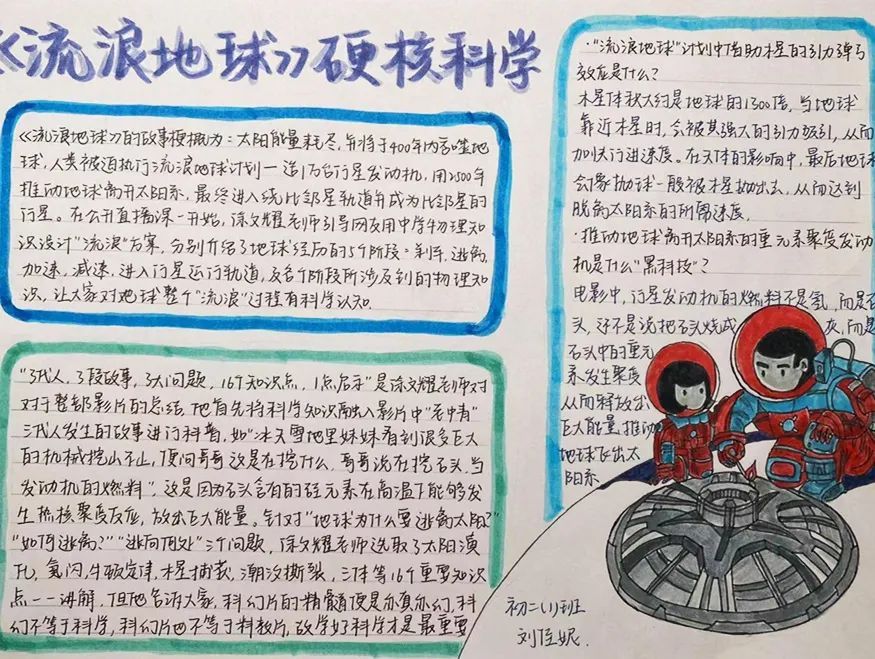 《流浪地球》硬核科学
《流浪地球》的故事梗概为:太阳能量耗尽,并将于400年内吞噬地
球,人类被迫执行流浪地球计划——造1万台行星发动机,用2500年
推动地球离开太阳系,最终进入绕比邻星轨道并成为比邻星的
行星。在公开直播课一开始,徐文耀老师引导网友用中学物理知
识设计“流浪”方案,分别介绍了地球经历的5个阶段:刹车,逃离,
加速,减速,进入行星运行轨道,及各个阶段所涉及到的物理知
识,让大家对地球整个“流浪”过程有科学认知.
“3代人,3段故事,3大问题,16个知识点,1点启示”是徐文耀老师对
对于整部影片的总结,他首先将科学知识融入影片中“老中青”
三代人发生的故事进行科普,如“冰天雪地里妹妹看到很多巨大
的机械挖山不止,便问哥哥这是在挖什么,哥哥说在挖石头,当
发动机的燃料”,这是因为石头含有的硅元素在高温下能够发
生热核聚变反应,放出巨大能量。针对“地球为什么要逃离太阳?”
“如何逃离?”“逃向何处”三个问题,徐文耀老师选取了太阳演
化,氦闪,牛顿定律,木星捕获,潮汐撕裂,三体等16个重要知识
点一一讲解,但他告诉大家,科幻片的精髓便是亦真亦幻,科
幻不等于科学,科幻片也不等于科教片,故学好科学才是最重要
·“流浪地球”计划中借助木星的引力弹弓
效应是什么?
木星体积大约是地球的1300倍,当地球
靠近木星时,会被其强大的引力吸引,从而
加快行进速度。在天体的影响中,最后地球
会象抛球一般被木星抛出去,从而达到
脱离太阳系的所需速度.
·推动地球离开太阳系的重元素聚变发动
机是什么“黑科技”?
电影中,行星发动机的燃料不是氢,而是石
头,还不是说把石头烧成 灰,而是
石头中的重元
素发生聚变
从而释放出
巨大能量,推动
地球飞出太
阳系
初二(1)班
刘佳妮.